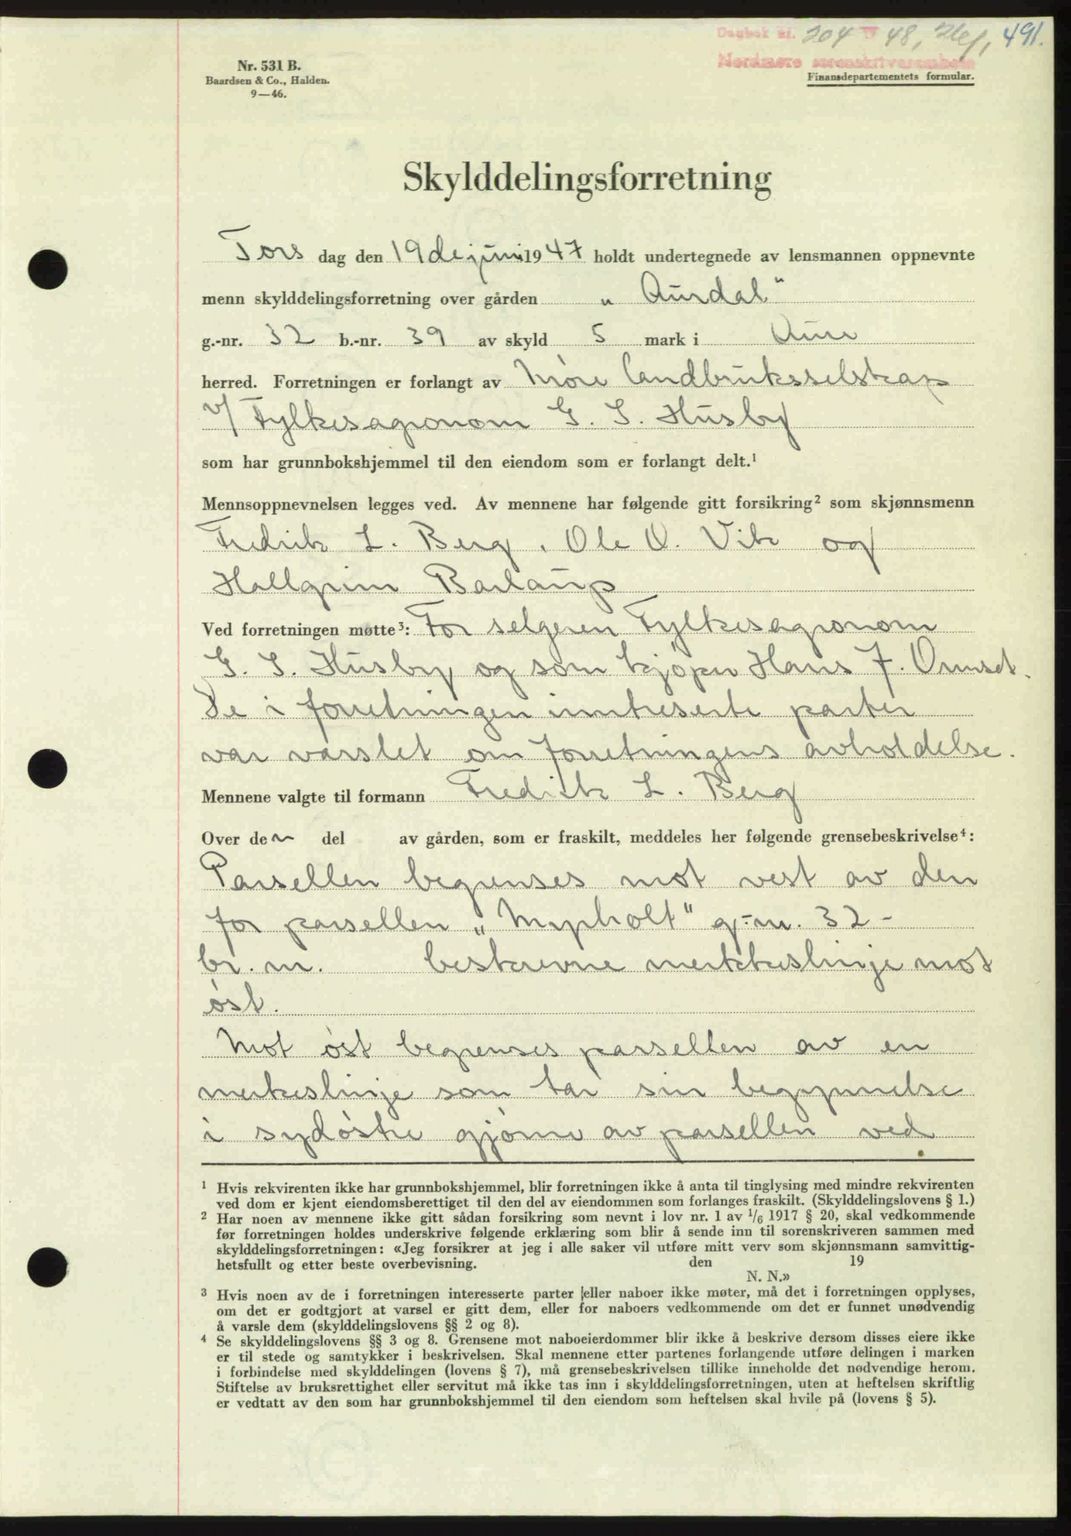 Dagbok nr. 204 19 48, 26/1, 491.
Nordmøre sorenskriverembete
Nr. 531 B.
Baardsen & Co., Halden.
9—46.
Finansdepartementets formular.
Skylddelingsforretning
Tors dag den 19de juni 1947 holdt undertegnede av lensmannen oppnevnte
menn skylddelingsforretning over gården „Aurdal"
g.-nr. 32 b.-nr. 39 av skyld 5 mark i Aure
herred. Forretningen er forlangt av Møre landbruksselskap
v/ Fylkesagronom G. S. Husby
som har grunnbokshjemmel til den eiendom som er forlangt delt.¹
Mennsoppnevnelsen legges ved. Av mennene har følgende gitt forsikring² som skjønnsmenn
Fredrik L. Berg, Ole O. Vik og
Hallgrim Barlaup
Ved forretningen møtte³: For selgeren Fylkesagronom
G. S. Husby og som kjøper Hans J. Ormset.
De i forretningen inntreserte parter
var varslet om forretningens avholdelse.
Mennene valgte til formann Fredrik L. Berg
Over den del av gården, som er fraskilt, meddeles her følgende grensebeskrivelse⁴:
Parsellen begrenses mot vest av den
for parsellen „Myrholt" g.-nr. 32 -
br. nr. beskrevne merkeslinje mot
øst.
Mot øst begrenses parsellen av en
merkeslinje som tar sin begynnelse
i sydøstre hjørne av parsellen ved
¹ Hvis rekvirenten ikke har grunnbokshjemmel, blir forretningen ikke å anta til tinglysing med mindre rekvirenten
ved dom er kjent eiendomsberettiget til den del av eiendommen som forlanges fraskilt. (Skylddelingslovens § 1.)
² Har noen av mennene ikke gitt sådan forsikring som nevnt i lov nr. 1 av 1/6 1917 § 20, skal vedkommende
før forretningen holdes underskrive følgende erklæring som blir å sende inn til sorenskriveren sammen med
skylddelingsforretningen: «Jeg forsikrer at jeg i alle saker vil utføre mitt verv som skjønnsmann samvittig-
hetsfullt og etter beste overbevisning. den 19
N. N.»
³ Hvis noen av de i forretningen interesserte parter eller naboer ikke møter, må det i forretningen opplyses,
om det er godtgjort at varsel er gitt dem, eller for naboers vedkommende om det er funnet unødvendig
å varsle dem (skylddelingslovens §§ 2 og 8).
⁴ Se skylddelingslovens §§ 3 og 8. Grensene mot naboeierdommer blir ikke å beskrive dersom disses eiere ikke
er til stede og samtykker i beskrivelsen. Skal mennene etter partenes forlangende utføre delingen i marken
i forbindelse med skylddelingen (lovens § 7), må grensebeskrivelsen tillike inneholde det nødvendige herom.
Stiftelse av bruksrettighet eller servitut må ikke tas inn i skylddelingsforretningen, uten at heftelsen skriftlig
er vedtatt av den som har grunnbokshjemmel til den eiendom som heftelsen skal hvile på (lovens § 5).